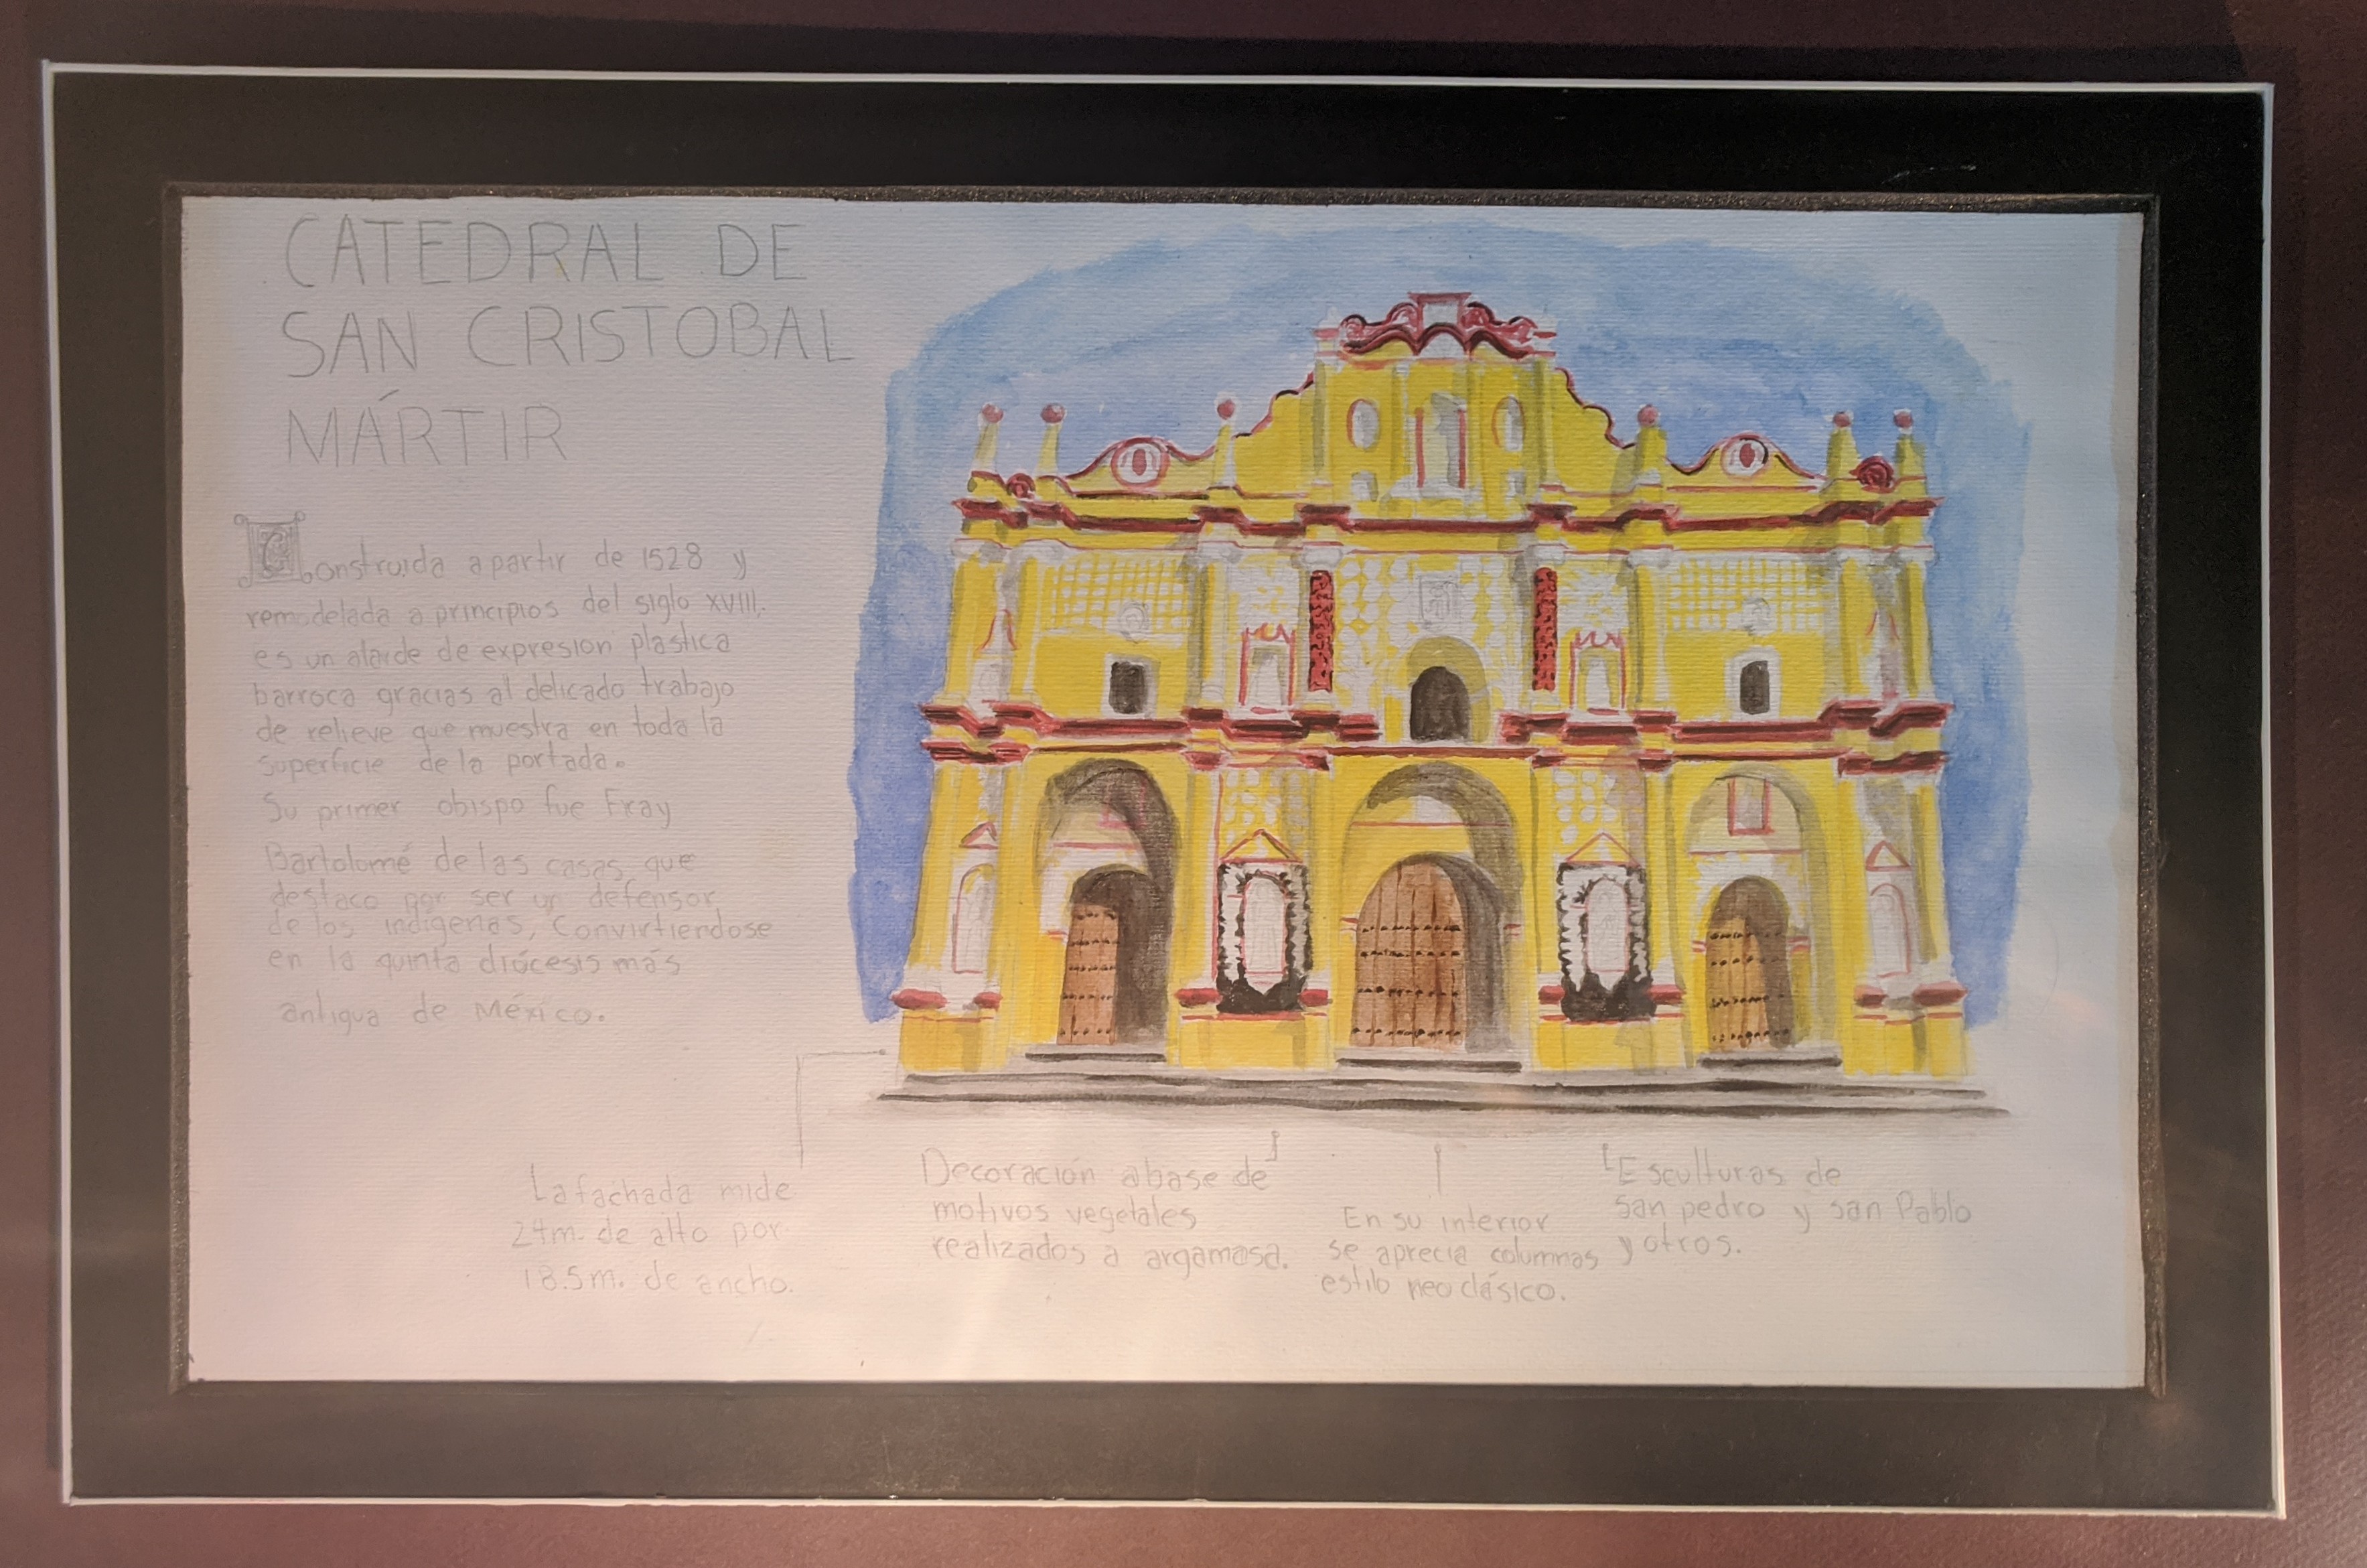 CATEDRAL DE
SAN CRISTOBAL
MÁRTIR
Construida a partir de 1528 y
remodelada a principios del siglo XVIII.
es un alarde de expresion plastica
barroca gracias al delicado trabajo
de relieve que muestra en toda la
superficie de la portada.
Su primer obispo fue Fray
Bartolomé de las casas, que
destaco por ser un defensor
de los indígenas, convirtiendose
en la quinta diócesis más
antigua de México.
La fachada mide
24m. de alto por
18.5m. de ancho.
Decoración a base de
motivos vegetales
realizados a argamasa.
En su interior
se aprecia columnas
estilo neoclásico.
Esculturas de
san pedro y san Pablo
y otros.